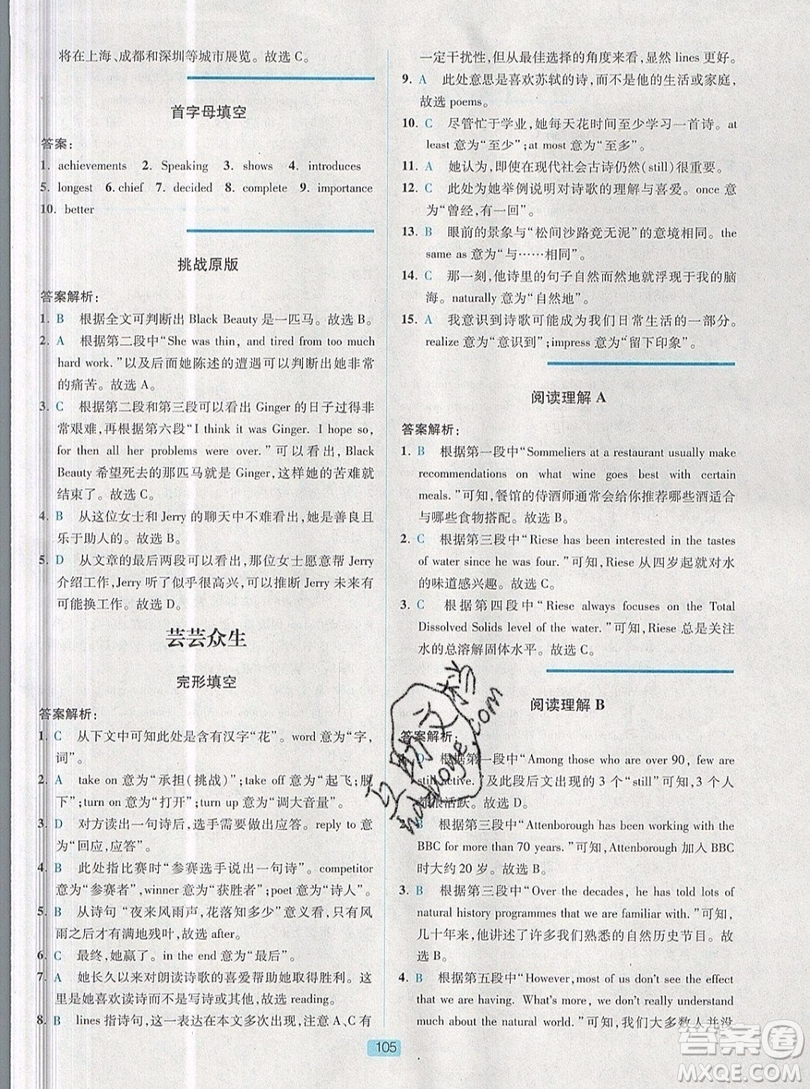 将在上海、成都和深圳等城市展览。故选 C。
首字母填空
答案:
1. achievements 2. Speaking 3. shows 4. introduces
5. longest 6. chief 7. decided 8. complete 9. importance
10. better
挑战原版
答案解析:
1. B 根据全文可判断出 Black Beauty 是一匹马。故选 B。
2. A 根据第二段中“She was thin, and tired from too much
hard work.”以及后面她陈述的遭遇可以判断出她非常
的痛苦。故选 A。
3. C 根据第二段和第三段可以看出 Ginger 的日子过得非
常艰难,再根据第六段“I think it was Ginger. I hope so,
for then all her problems were over.”可以看出 Black
Beauty 希望死去的那匹马就是 Ginger,这样她的苦难就
结束了。故选 C。
4. B 从这位女士和 Jerry 的聊天中不难看出,她是善良且
乐于助人的。故选 B。
5. D 从文章的最后两段可以看出,这位女士愿意帮 Jerry
介绍工作,Jerry 听了似乎很高兴,这预示出 Jerry 未来有
可能换工作。故选 D。
芸芸众生
完形填空
答案解析:
1. C 从下文中可知此处是含有汉字“花”。word 意为“字,
词”。
2. A take on 意为“承担(挑战)”;take off 意为“起飞;脱
下”;turn on 意为“打开”;turn up 意为“调大音量”。
3. D 对方读出一句诗后,选手需要做出应答。reply to 意
为“回应,应答”。
4. B 此处指比赛时“参赛选手说出一句诗”。competitor
意为“参赛者”,winner 意为“获胜者”;poet 意为“诗人”。
5. B 从诗句 “夜来风雨声,花落知多少”意义看,有风有
雨之后才有花落,所以此处填 rain。
6. C 最终,她赢了。in the end 意为“最后”。
7. A 她长久以来对朗读诗歌的喜爱帮助她获胜。注意这
里是她喜欢读诗而不是写诗,故选 reading。
8. B lines 指诗句,这道题放在本文多次出现。注意 A、C 有
一定干扰性,但从最佳选择的角度来看,此处 lines 更好。
9. A 此处意思是喜欢苏轼的诗,而不是他的生活或家庭,
故选 poems。
10. C 尽管忙于学业,她每天花时间至少学习一首诗。at
least 意为“至少”;at most 意为“至多”。
11. A 她认为,即使在现代社会古诗仍然(still)很重要。
12. C 此处为她举例说明对诗歌的理解与喜爱。once 意
为“曾经,有一回”。
13. B 眼前的景象与“松间沙路竟无泥”的意境相同。the
same as 意为“与……相同”。
14. C 那一刻,他诗里的句子自然而然就浮现于我的脑
海。naturally 意为“自然地”。
15. A 我意识到诗歌可能成为我们日常生活的一部分。
realize 意为“意识到”;impress 意为“留下印象”。
阅读理解 A
答案解析:
1. B 根据第一段中“Sommeliers at a restaurant usually make
recommendations on what wine goes best with certain
meals.”可知,餐馆的侍酒师通常会给你推荐哪些酒适合
与哪些食物搭配。故选 B。
2. C 根据第三段中“Riese has been interested in the tastes
of water since he was four.”可知,Riese 从四岁起就对水
的味道感兴趣。故选 C。
3. C 根据第四段中“Riese always focuses on the Total
Dissolved Solids level of the water.”可知,Riese 总是关注
水的总溶解固体水平。故选 C。
阅读理解 B
答案解析:
1. D 根据第一段中“Among those who are over 90, few are
still active.”及此段后文出现的 3 个“still”可知,3 个人
都很活跃。故选 D。
2. B 根据第三段中“Attenborough has been working with the
BBC for more than 70 years.”可知,Attenborough 加入 BBC
时大约 20 岁。故选 B。
3. B 根据第三段中“Over the decades, he has told lots of
natural history programmes that we are familiar with.”可知,
几十年来,他讲述了许多我们熟悉的自然历史节目。故
选 B。
4. B 根据第五段中“However, most of us don't see the effect
that we are having. What's more, we don't know enough
about the natural world.”可知,我们大多数人并没
105
互助文档
hdzuoye.com
答案圈
MXQE.COM